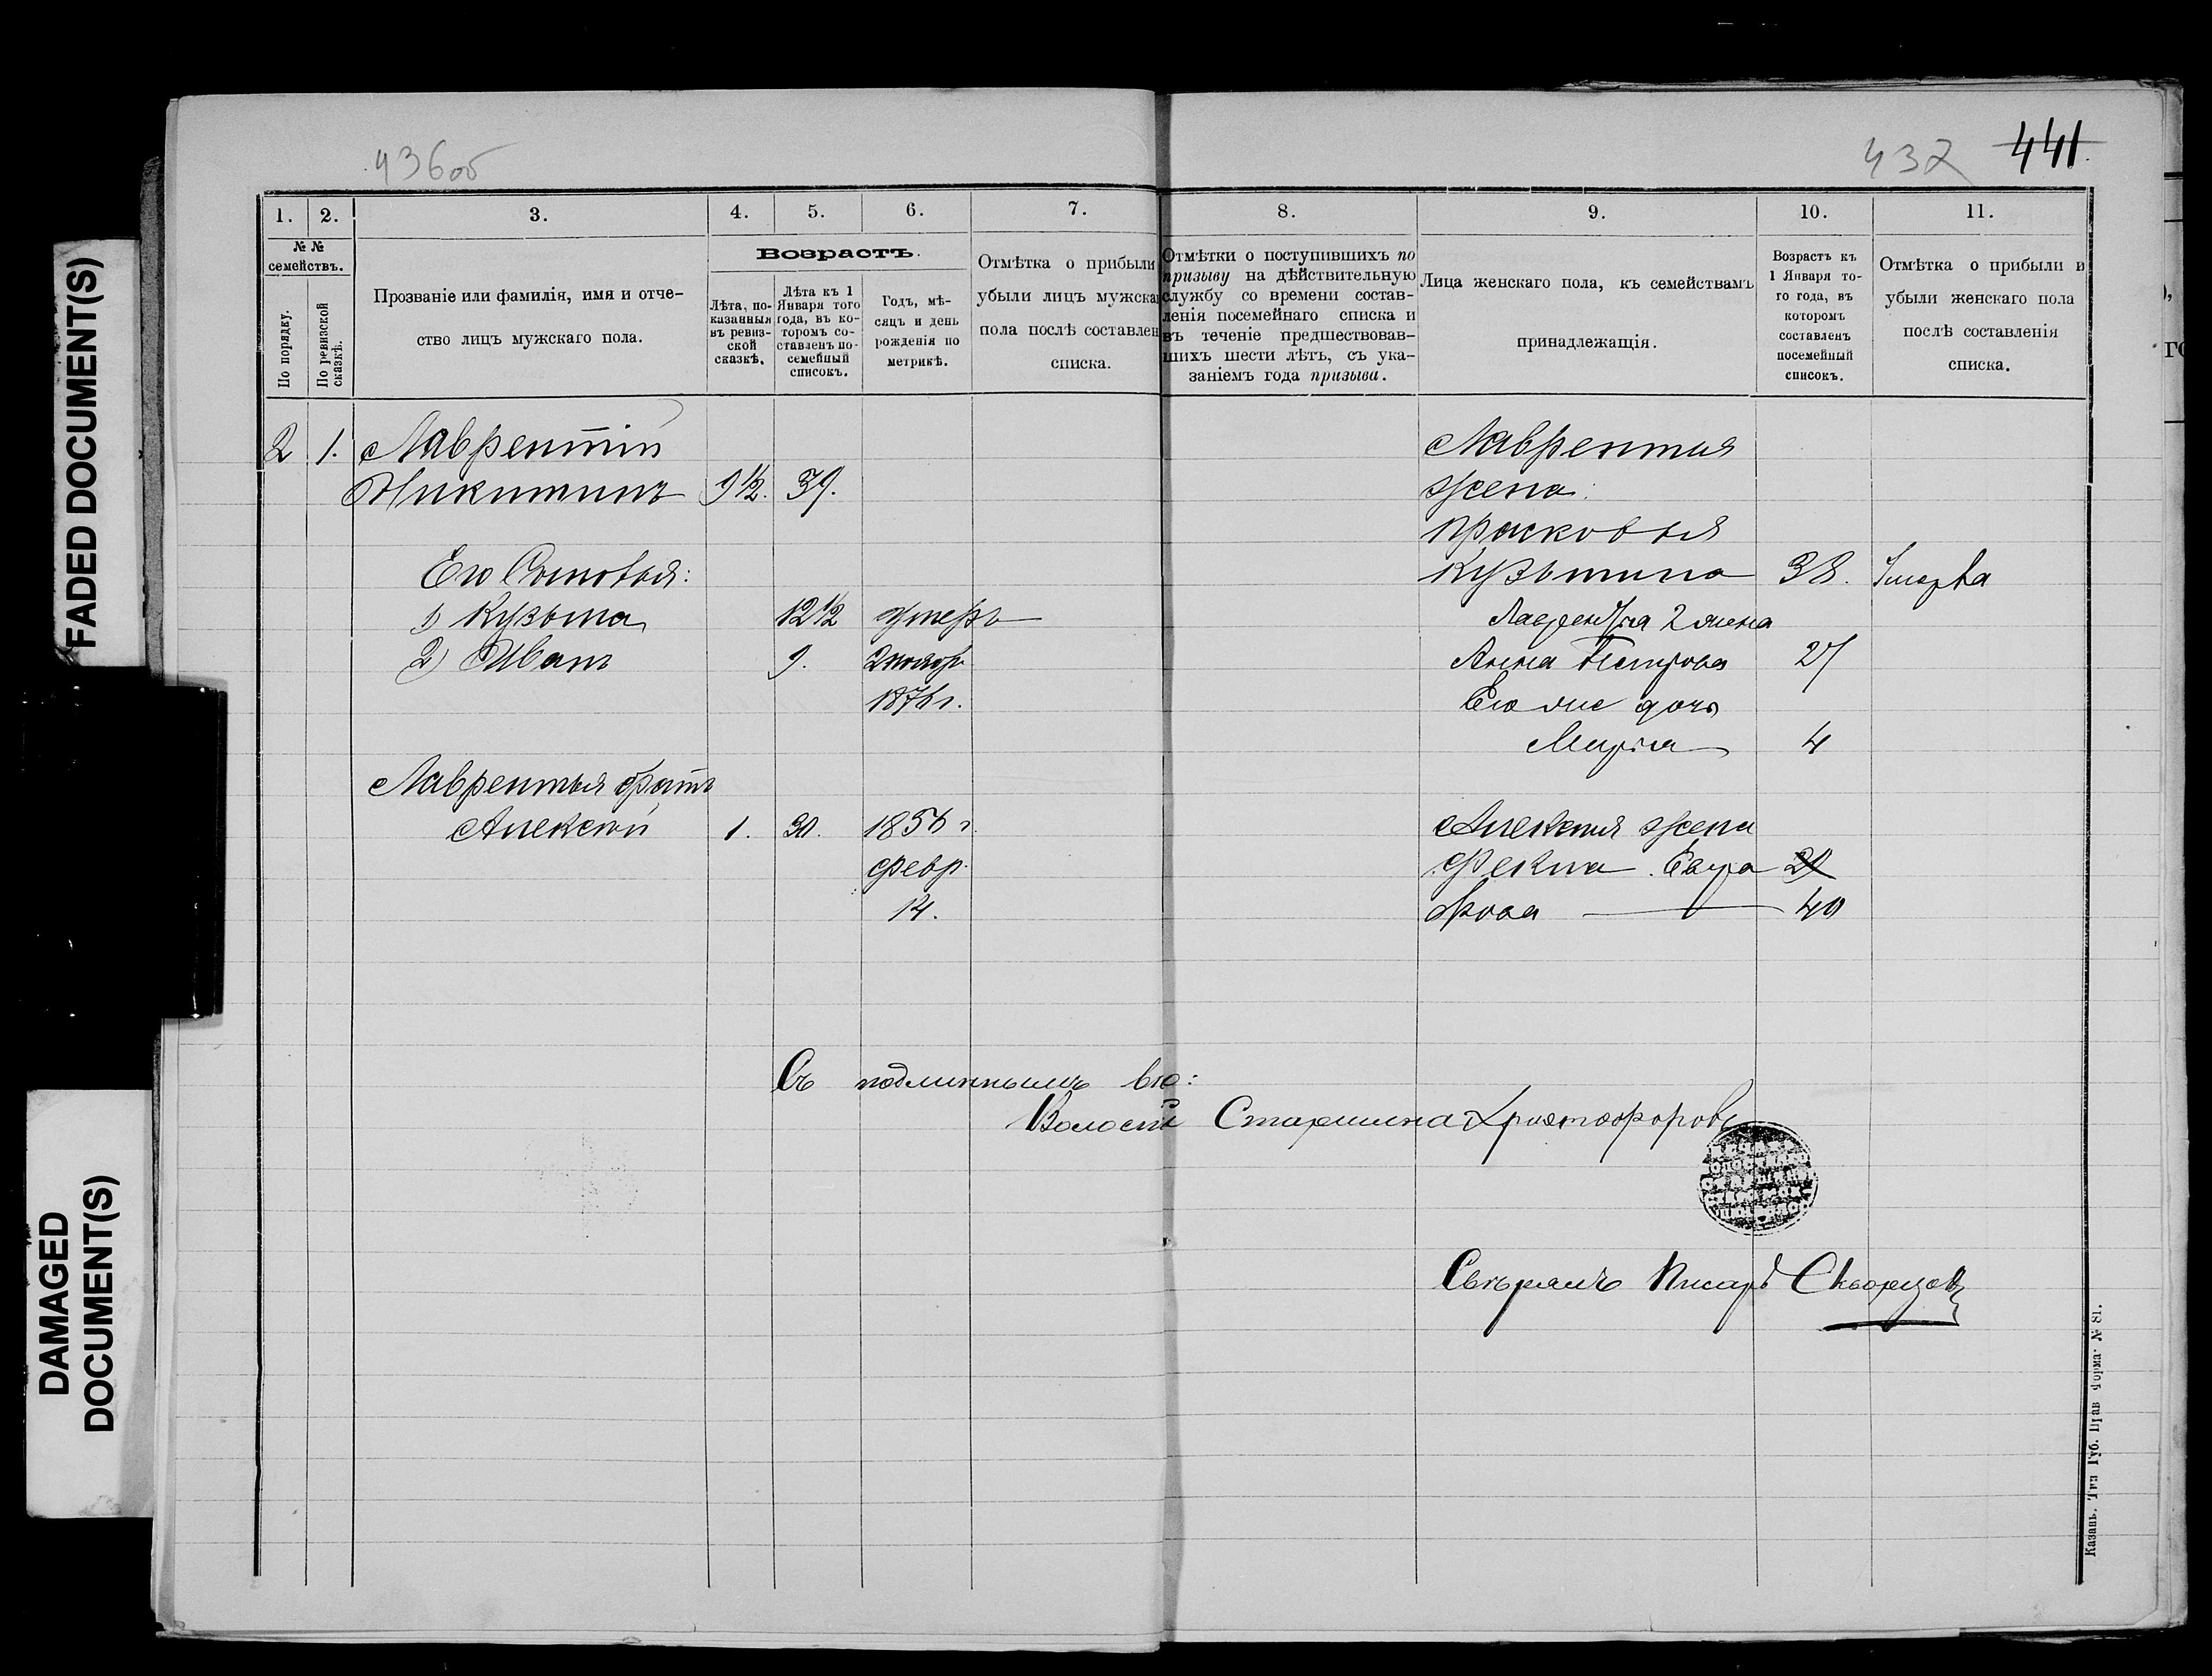 FADED DOCUMENT(S)
DAMAGED
DOCUMENT(S)
436об
437 441.
1. 2. 3. 4. 5. 6. 7. 8. 9. 10. 11.
№ №
семействъ.
По порядку.
По ревизской
сказкѣ.
Прозваніе или фамилія, имя и отче-
ство лицъ мужскаго пола.
Возрастъ.
Лѣта, по-
казанныя
въ ревиз-
ской
сказкѣ.
Лѣта къ 1
Января того
года, въ ко-
торомъ со-
ставленъ по-
семейный
списокъ.
Годъ, мѣ-
сяцъ и день
рожденія по
метрикѣ.
Отмѣтка о прибыли
убыли лицъ мужска
пола послѣ составлен
списка.
Отмѣтки о поступившихъ по
призыву на дѣйствительную
службу со времени состав-
ленія посемейнаго списка и
въ теченіе предшествовав-
шихъ шести лѣтъ, съ ука-
заніемъ года призыва.
Лица женскаго пола, къ семействамъ
принадлежащія.
Возрастъ къ
1 Января то-
го года, въ
которомъ
составленъ
посемейный
списокъ.
Отмѣтка о прибыли и
убыли женскаго пола
послѣ составленія
списка.
2 1. Лаврентій
Никитинъ 9 1/2. 39.
Его Сыновья:
1) Кузьма 12 1/2 умеръ
2) Иванъ 9. 2 ноябр
1876 г.
Лаврентья братъ
Алексѣй 1. 30. 1856 г.
Февр.
14.
Лаврентия
жена:
Прасковья
Кузьмина 38. Умерла
Лаврентья 2 жена
Анна Петрова 27
Его же дочь
Марья 4
Алексея жена
Фекла Евгра 29
фова 40
Съ подлиннымъ вѣр:
Волостн Старшина Христофоровъ
Свѣрялъ Писарь Скворцовъ
Казань. Тип Губ. Прав Форма № 81.